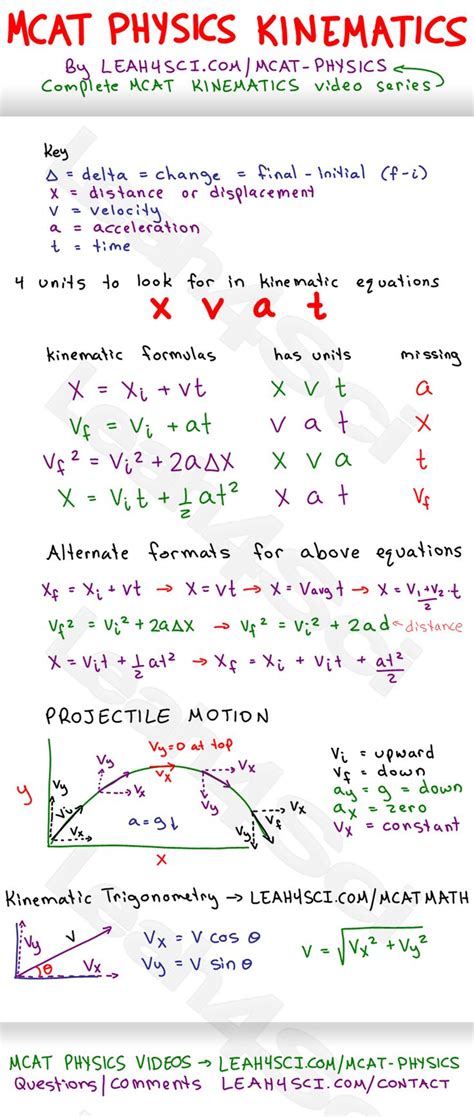 MCAT PHYSICS KINEMATICS
By LEAH4SCI.COM/MCAT-PHYSICS
Complete MCAT KINEMATICS video series
Key
Δ = delta = change = final - Initial (f-i)
X = distance or displacement
V = velocity
a = acceleration
t = time
4 units to look for in kinematic equations
X V a t
kinematic formulas has units missing
X = Xi + Vt X V t a
Vf = Vi + at V a t X
Vf² = Vi² + 2aΔX X V a t
X = Vit + ½at² X a t Vf
Alternate formats for above equations
Xf = Xi + Vt → X = Vt → X = Vavgt → X = V₁+V₂·t/2
Vf² = Vi² + 2aΔX → Vf² = Vi² + 2ad ← distance
X = Vit + ½at² → Xf = Xi + Vit + at²/2
PROJECTILE MOTION
Vy=0 at top
Vy
Vx
Vx
Vx
Vy
y
Vy
Vi
Vx
a=g↓
Vy
Vx
Vf
Vy
X
Vi = upward
Vf = down
ay = g = down
ax = zero
Vx = constant
Kinematic Trigonometry → LEAH4SCI.COM/MCATMATH
Vy V
θ Vx
Vx = V cos θ
Vy = V sin θ
V = √Vx² + Vy²
MCAT PHYSICS VIDEOS → LEAH4SCI.COM/MCAT-PHYSICS
Questions/Comments LEAH4SCI.COM/CONTACT
Leah4Sci
Leah4Sci